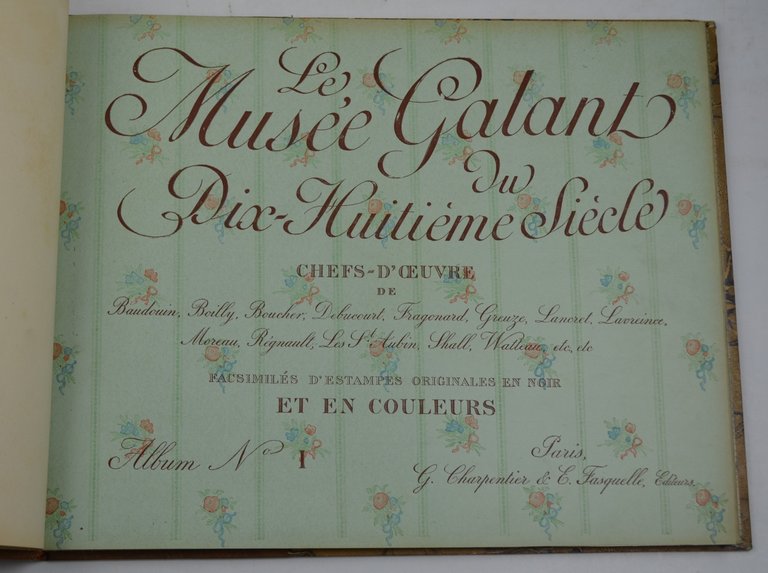 Le
Musée Galant
du
Dix-Huitième Siècle
CHEFS-D'ŒUVRE
DE
Baudouin, Boilly, Boucher, Debucourt, Fragonard, Greuze, Lancret, Lavreince,
Moreau, Régnault, Les St Aubin, Shall, Watteau, etc, etc
FACSIMILÉS D'ESTAMPES ORIGINALES EN NOIR
ET EN COULEURS
Album No I
Paris,
G. Charpentier & E. Fasquelle, Editeurs